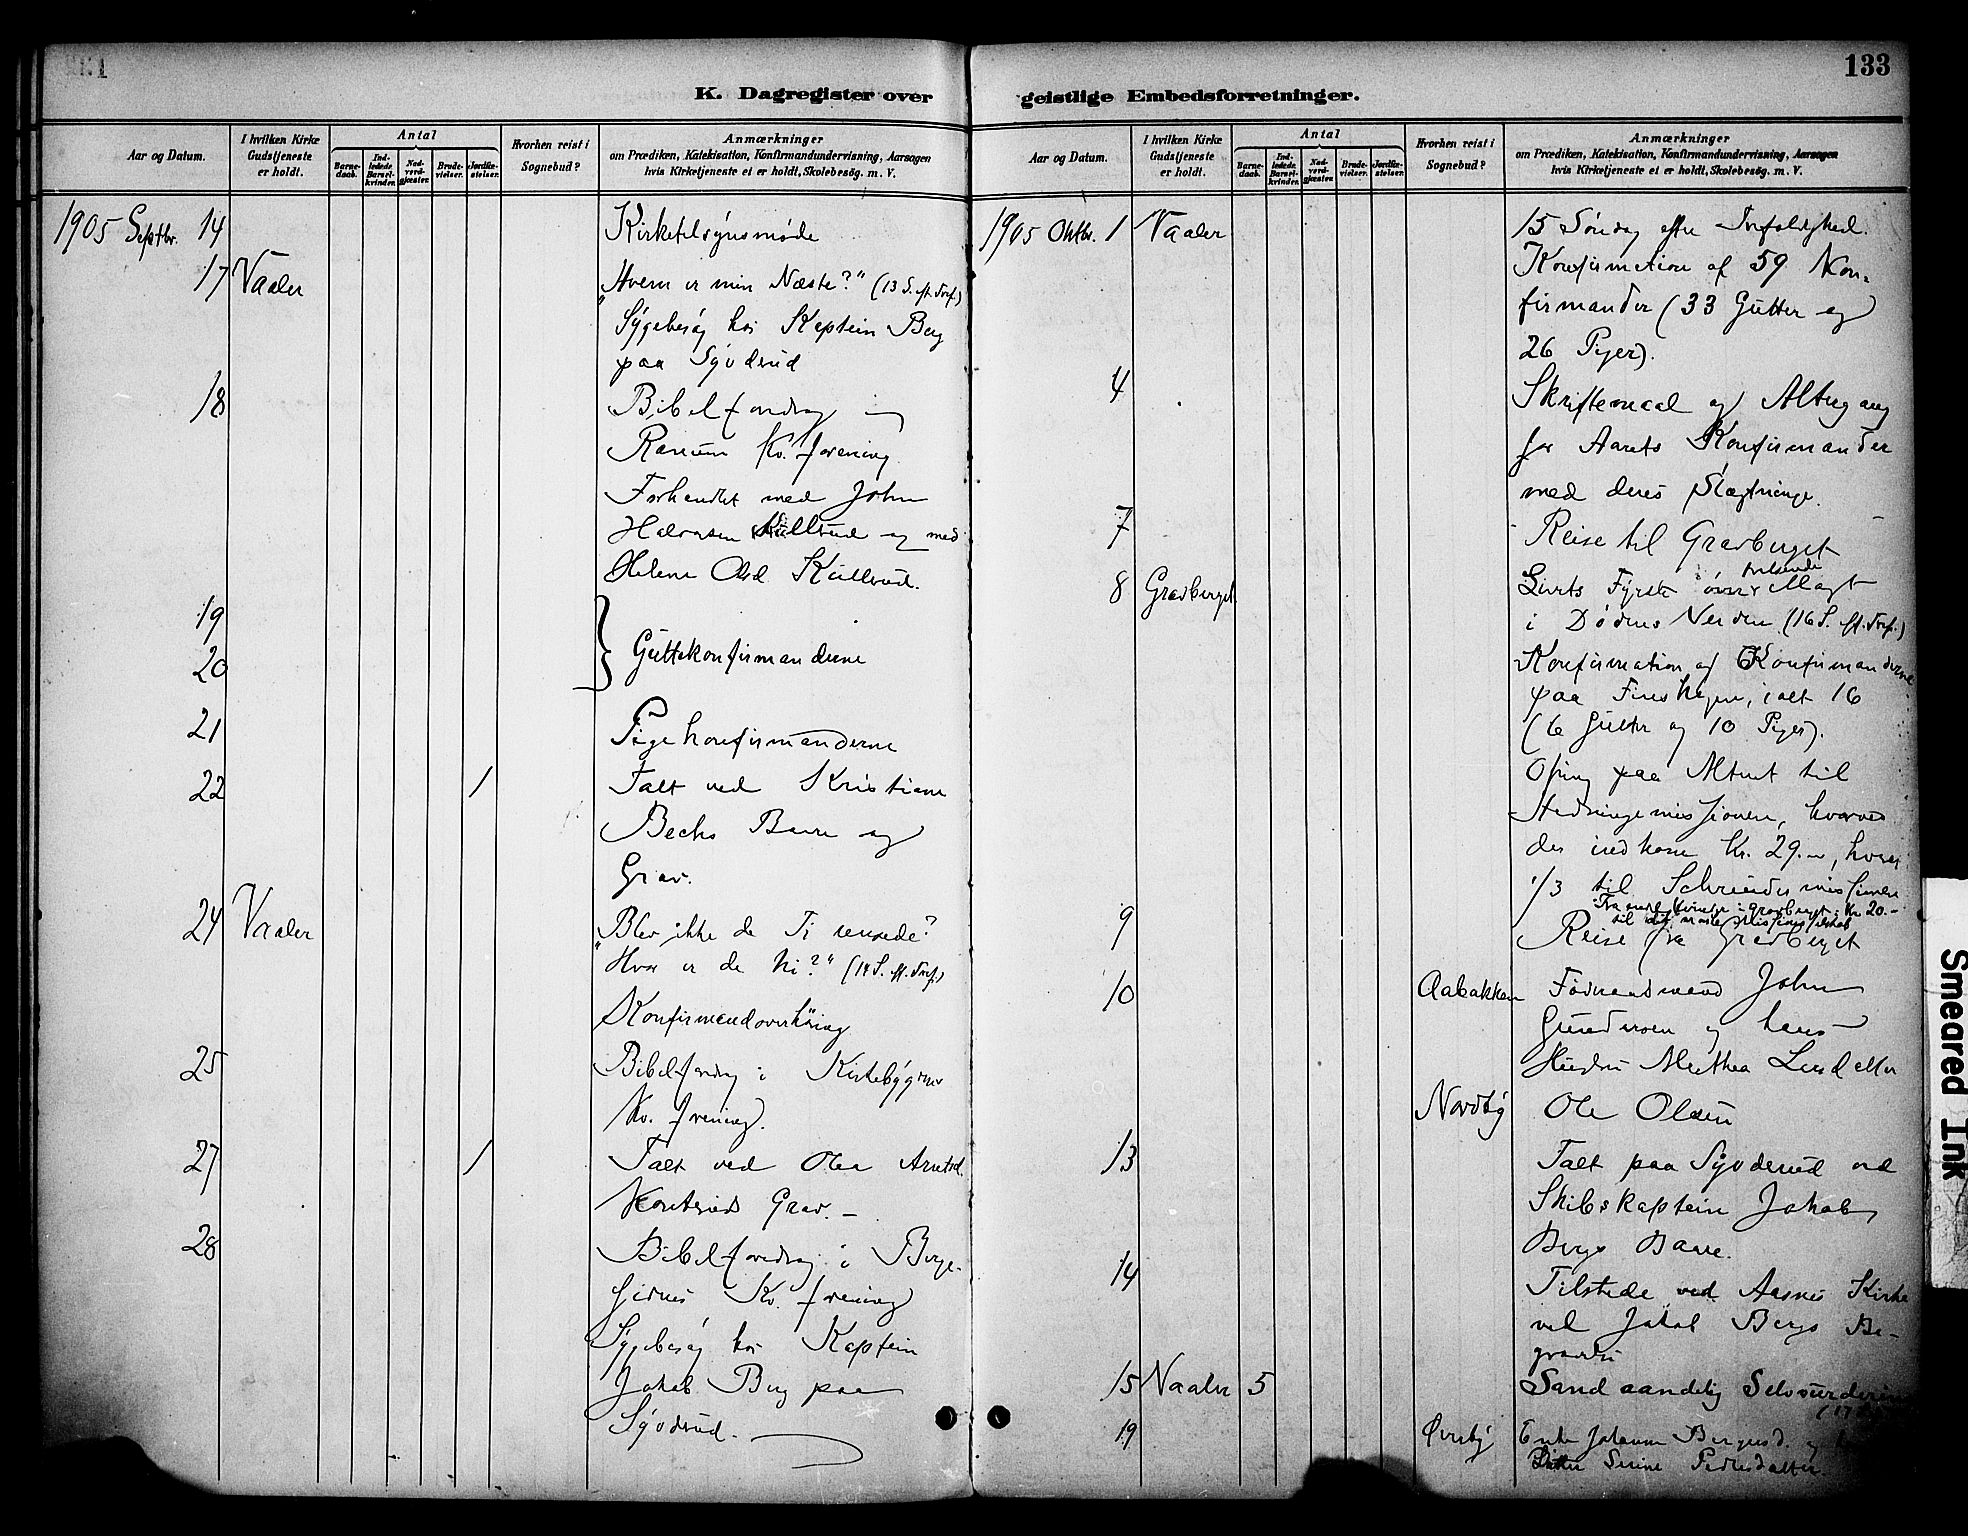 133
K. Dagregister over geistlige Embedsforretninger.
Aar og Datum.
I hvilken Kirke Gudstjeneste er holdt.
Antal
Barne-daab.
Ind-ledede Barsel-kvinder.
Nad-verd-gjæster.
Brude-vielser.
Jordfæ-stelser.
Hvorhen reist i Sognebud?
Anmærkninger
om Prædiken, Katekisation, Konfirmandundervisning, Aarsagen
hvis Kirketjeneste ei er holdt, Skolebesög. m. V.
1905 Septbr. 14 Kirketilsynsmøde
17 Vaaler "Hvem er min Næste?" (13 S. eft. Tref.)
Sygebesøg hos Kaptein Berg
paa Syvdrud
18 Bibelforedrag i
Kv. forening.
Forhandlet med John
Halvorsen Kullerud og med
Helene Olsd. Kullerud.
19
20 Guttekonfirmanderne
21 Pigekonfirmanderne
22 / Talt ved Kristiane
Bechs Baare og
Grav.
24 Vaaler "Blev ikke de Ti rensede?
Hvor er de ni?" (14 S. eft. Tref.)
Konfirmandoverhøring
25 Bibelforedrag i Kirkebygdens
Kv. forening.
27 / Talt ved Olea Arnetsd.
Grav. –
28 Bibelforedrag i Berge-
Kv. forening
Sygebesøg hos Kaptein
Jakob Berg paa
Syvdrud.
Aar og Datum.
I hvilken Kirke Gudstjeneste er holdt.
Antal
Barne-daab.
Ind-ledede Barsel-kvinder.
Nad-verd-gjæster.
Brude-vielser.
Jordfæ-stelser.
Hvorhen reist i Sognebud?
Anmærkninger
om Prædiken, Katekisation, Konfirmandundervisning, Aarsagen
hvis Kirketjeneste ei er holdt, Skolebesög. m. V.
1905 Oktbr. 1 Vaaler 15 Søndag efter Trefoldighed.
Konfirmation af 59 Kon-
firmander (33 Gutter og
26 Piger).
4 Skriftemaal og Altergang
for Aarets Konfirmander
med deres Slægtninge.
7 Reise til Gravberget
8 Gravberget Livets Fyrste øver frelsende Magt
i Dødens Verden (16 S. eft. Tref.)
Konfirmation af Konfirmanderne
paa Finskogen, i alt 16
(6 Gutter og 10 Piger).
Ofring paa Alteret til
Hedningemissionen, hvorved
der indkom Kr. 29.–, hvoraf
1/3 til Schreudermissionen
Fra Kvindef. i Gravberget: Kr 20.–
til det norske Missionsselskab
9 Reise fra Gravberget
10 Aabakken Føderaadsmand John
Gundersen og hans
Hustru Mathea
Nordby Ole Olsen
13 Talt paa Syvderud ved
Skibskaptein Jakob
Bergs Baare.
14 Tilstede ved Aasnes Kirke
ved Jakob Bergs Be-
gravelse
15 Vaaler 5 Sand aandelig Selvvurdering
19 Øverby Enke Johanne Bergersd. og
Datter Serine Pedersdatter.
Smeared Ink